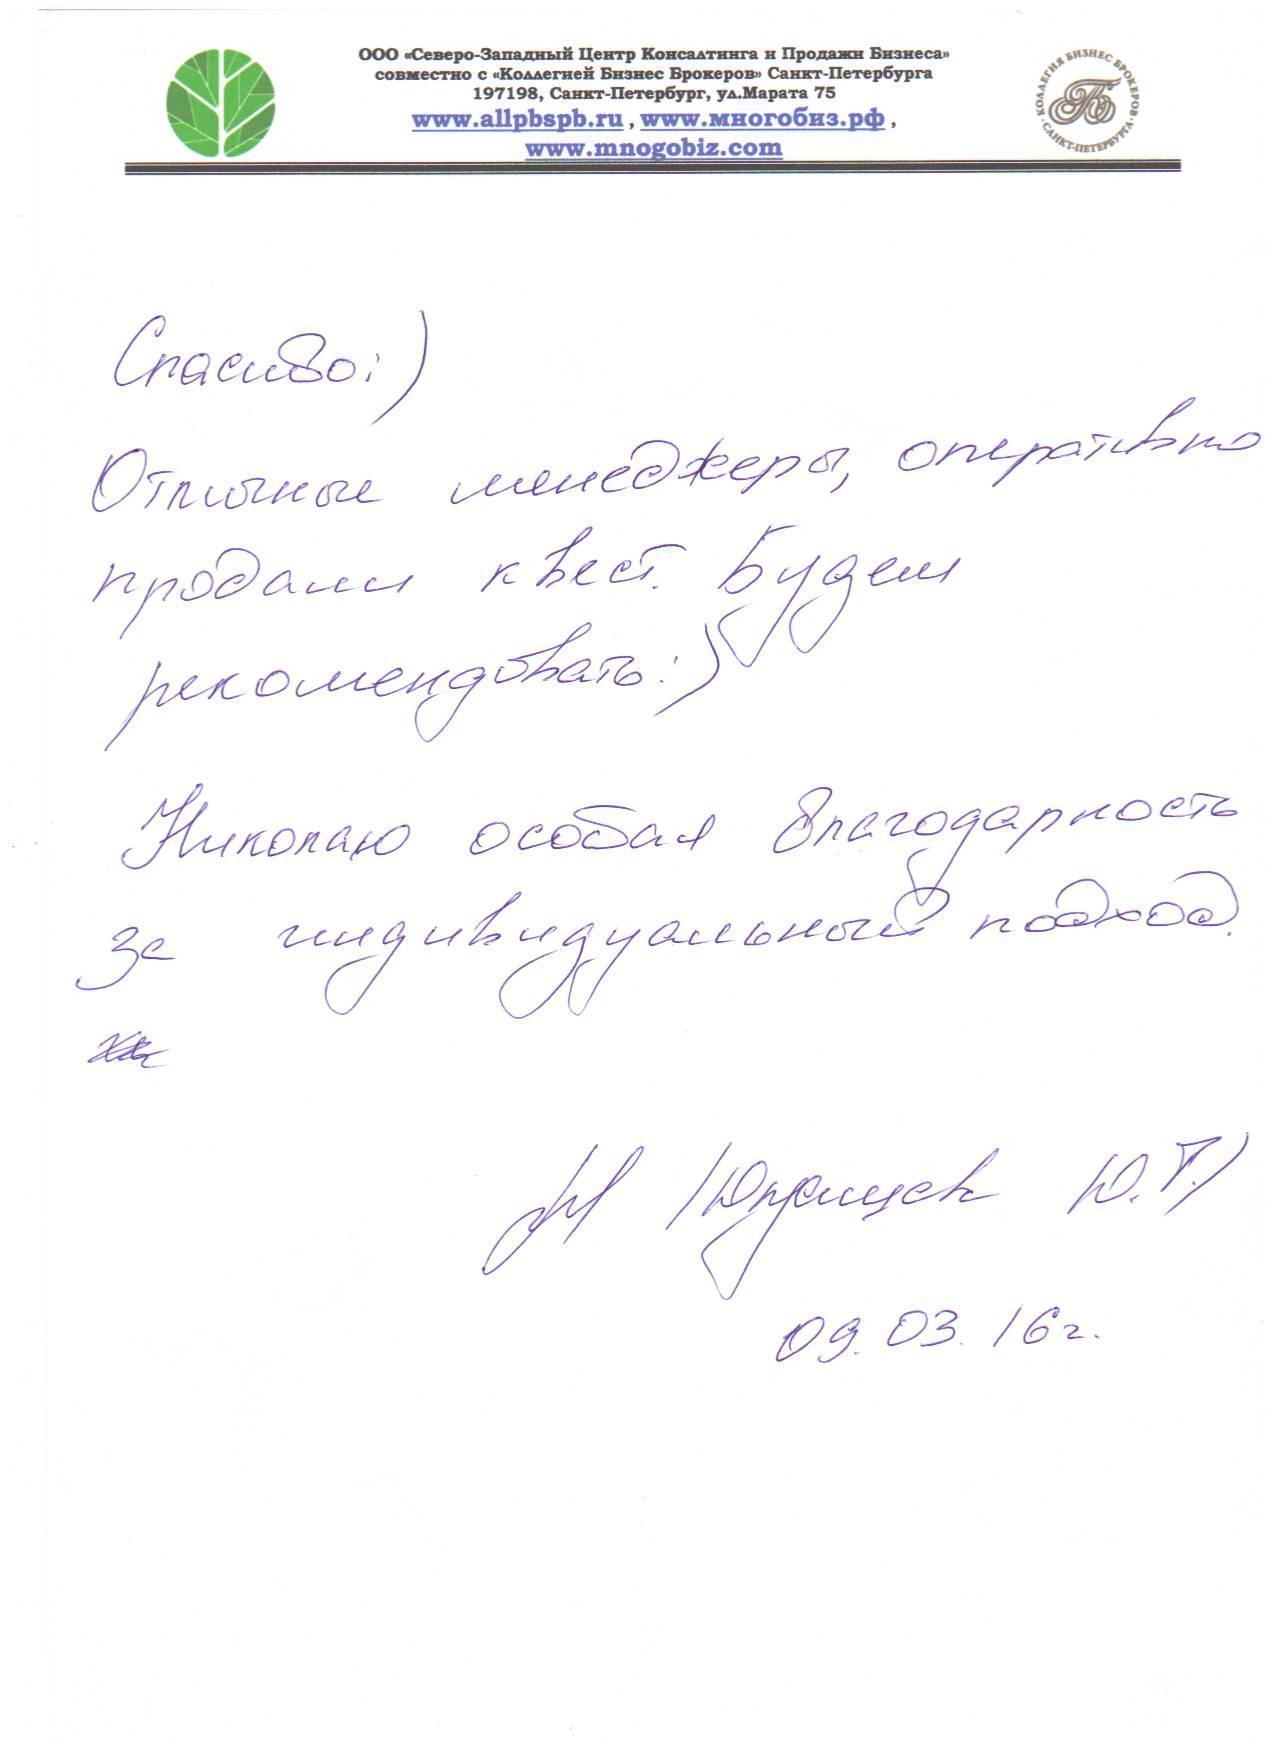 ООО «Северо-Западный Центр Консалтинга и Продажи Бизнеса»
совместно с «Коллегией Бизнес Брокеров» Санкт-Петербурга
197198, Санкт-Петербург, ул.Марата 75
www.allpbspb.ru , www.многобиз.рф ,
www.mnogobiz.com
КОЛЛЕГИЯ БИЗНЕС БРОКЕРОВ
САНКТ-ПЕТЕРБУРГА
Спасибо:)
Отличные менеджеры, оперативно
продали квест. Будем
рекомендовать:)
Николаю особая благодарность
за индивидуальный подход.
Ю.Т.)
09.03.16г.